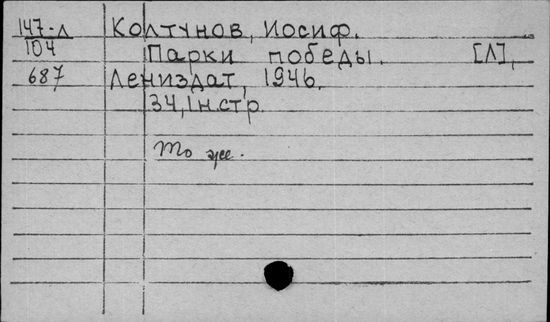 147-л Колтунов, Иосиф.
104 Парки победы. [Л],
687 Лениздат, 1946.
34,1н.стр.
То же.